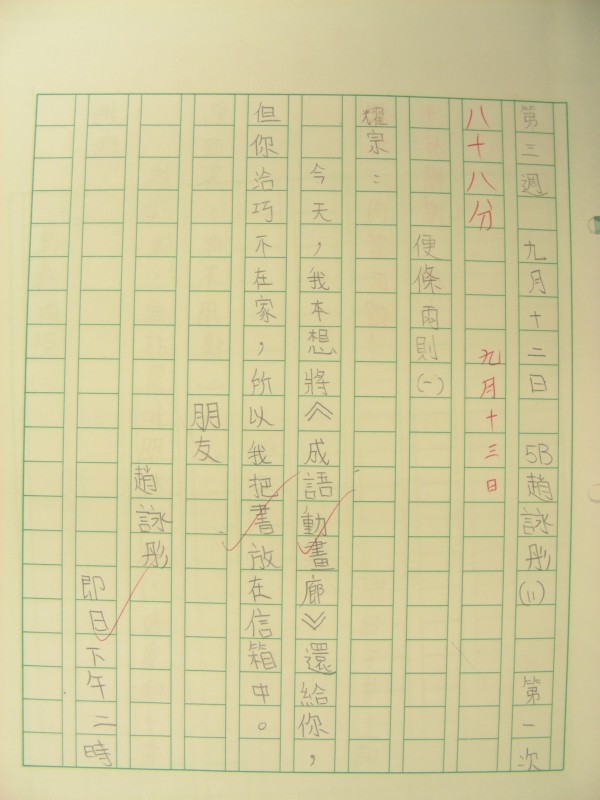 第三週 九月十二日 5B趙詠彤(11) 第一次
八十八分 九月十三日
便條兩則(一)
耀宗：
今天，我本想將《成語動畫廊》還給你，
但你洽巧不在家，所以我把書放在信箱中。
朋友
趙詠彤
即日下午二時